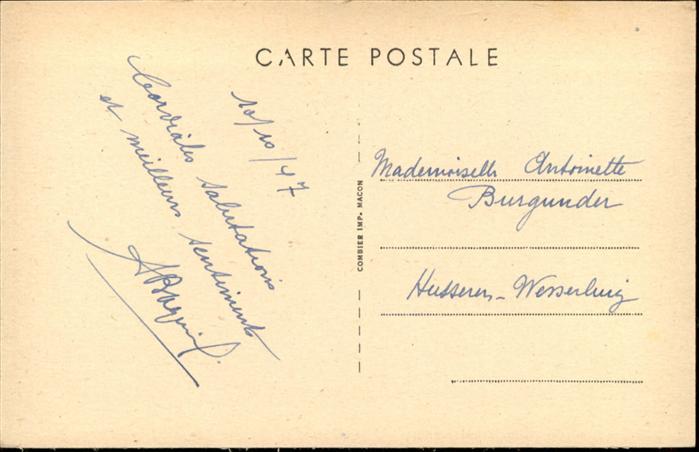 CARTE POSTALE
10/10/47
Cordiales salutations
et meilleurs sentiments
COMBIER IMP. MACON
Mademoiselle Antoinette
Burgunder
Husseren-Wesserling